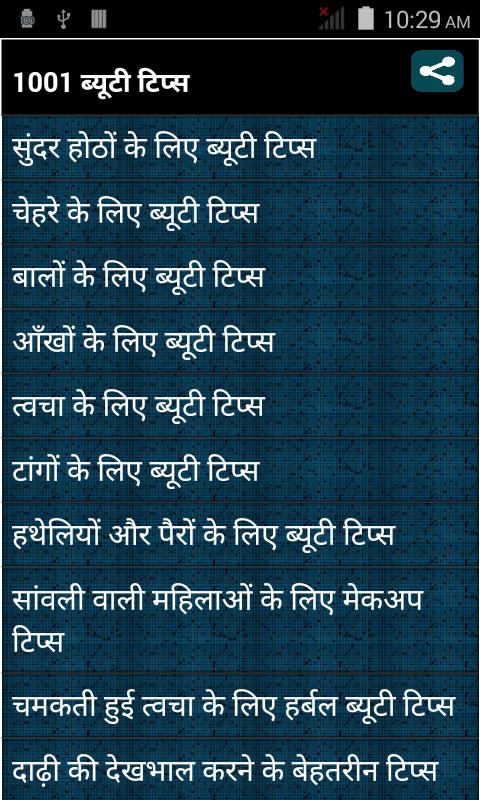 10:29 AM
1001 ब्यूटी टिप्स
सुंदर होठों के लिए ब्यूटी टिप्स
चेहरे के लिए ब्यूटी टिप्स
बालों के लिए ब्यूटी टिप्स
आँखों के लिए ब्यूटी टिप्स
त्वचा के लिए ब्यूटी टिप्स
टांगों के लिए ब्यूटी टिप्स
हथेलियों और पैरों के लिए ब्यूटी टिप्स
सांवली वाली महिलाओं के लिए मेकअप
टिप्स
चमकती हुई त्वचा के लिए हर्बल ब्यूटी टिप्स
दाढ़ी की देखभाल करने के बेहतरीन टिप्स